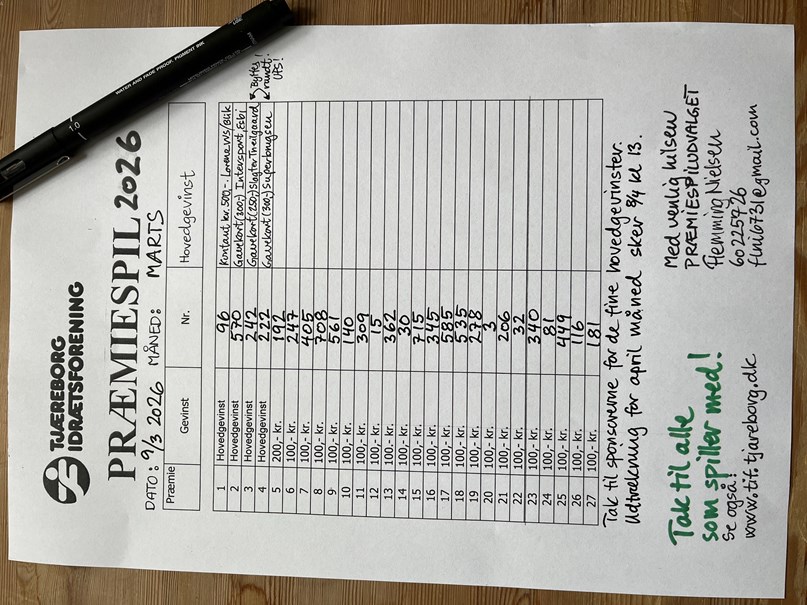 WATER AND FADE PROOF, PIGMENT INK
1.0
TJÆREBORG
IDRÆTSFORENING
PRÆMIESPIL 2026
DATO: 9/3 2026 MÅNED: MARTS
Præmie Gevinst Nr. Hovedgevinst
1 Hovedgevinst 96 Kontant kr. 500,- Lorenz VVS/Blik
2 Hovedgevinst 570 Gavekort (200,-) Intersport, Esbj
3 Hovedgevinst 242 Gavekort (250,-) Slagter Theilgaard
4 Hovedgevinst 222 Gavekort (300,-) Superbrugsen
Byttes!
rundt!
UPS!
5 200,- kr. 192
6 100,- kr. 247
7 100,- kr. 405
8 100,- kr. 708
9 100,- kr. 561
10 100,- kr. 140
11 100,- kr. 309
12 100,- kr. 15
13 100,- kr. 362
14 100,- kr. 30
15 100,- kr. 715
16 100,- kr. 345
17 100,- kr. 585
18 100,- kr. 535
19 100,- kr. 278
20 100,- kr. 3
21 100,- kr. 206
22 100,- kr. 32
23 100,- kr. 340
24 100,- kr. 81
25 100,- kr. 449
26 100,- kr. 116
27 100,- kr. 181
Tak til sponsorerne for de fine hovedgevinster.
Udtrækning for april måned sker 8/4 kl 13.
Tak til alle
som spiller med!
Se også!
www.tif.tjareborg.dk
Med venlig hilsen
PRÆMIESPILUDVALGET
Flemming Nielsen
60225426
fluni6731@gmail.com